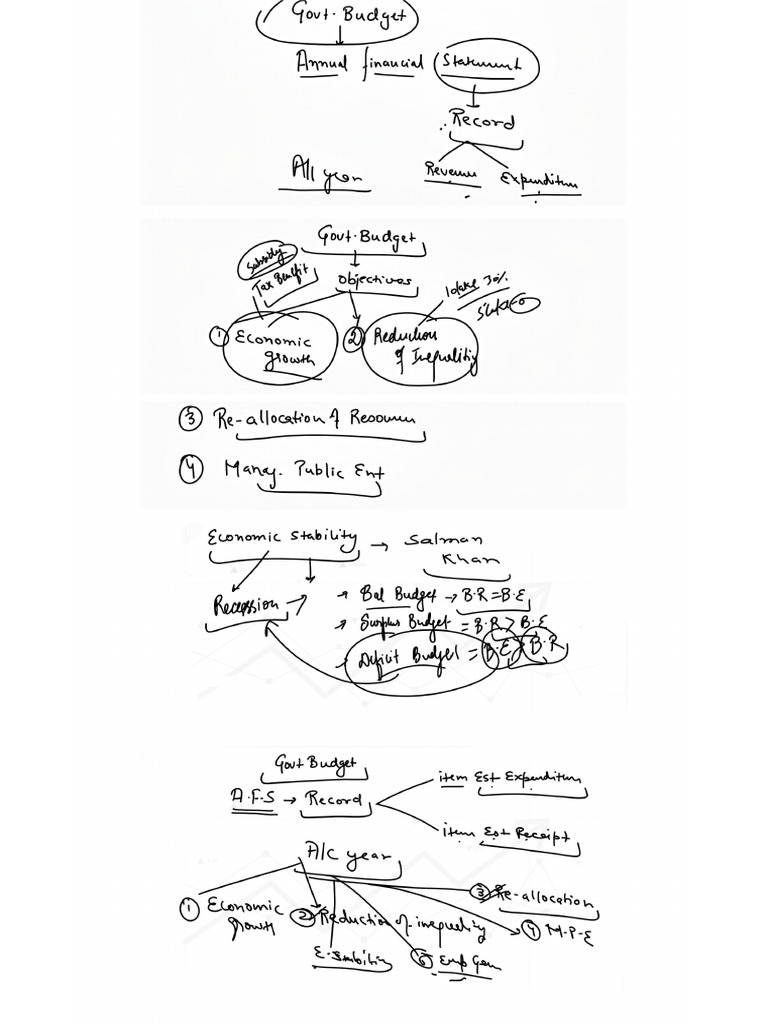 Govt. Budget
Annual financial Statement
Record
A/c year
Revenue
Expenditure
Govt. Budget
Subsidy
Tax Benefit
objectives
10 lakh 30%
① Economic growth
② Reduction of Inequality
③ Re-allocation of Resources
④ Manag. Public Ent
Economic Stability → Salman Khan
Recession →
→ Bal Budget → B.R = B.E
→ Surplus Budget = B.R > B.E
→ Deficit Budget = B.E > B.R
Govt Budget
A.F.S → Record
item Est Expenditure
item Est Receipt
A/C year
③ Re-allocation
① Economic growth
② Reduction of inequality
④ M.P.E
E. Stability
⑤ Emp Gen